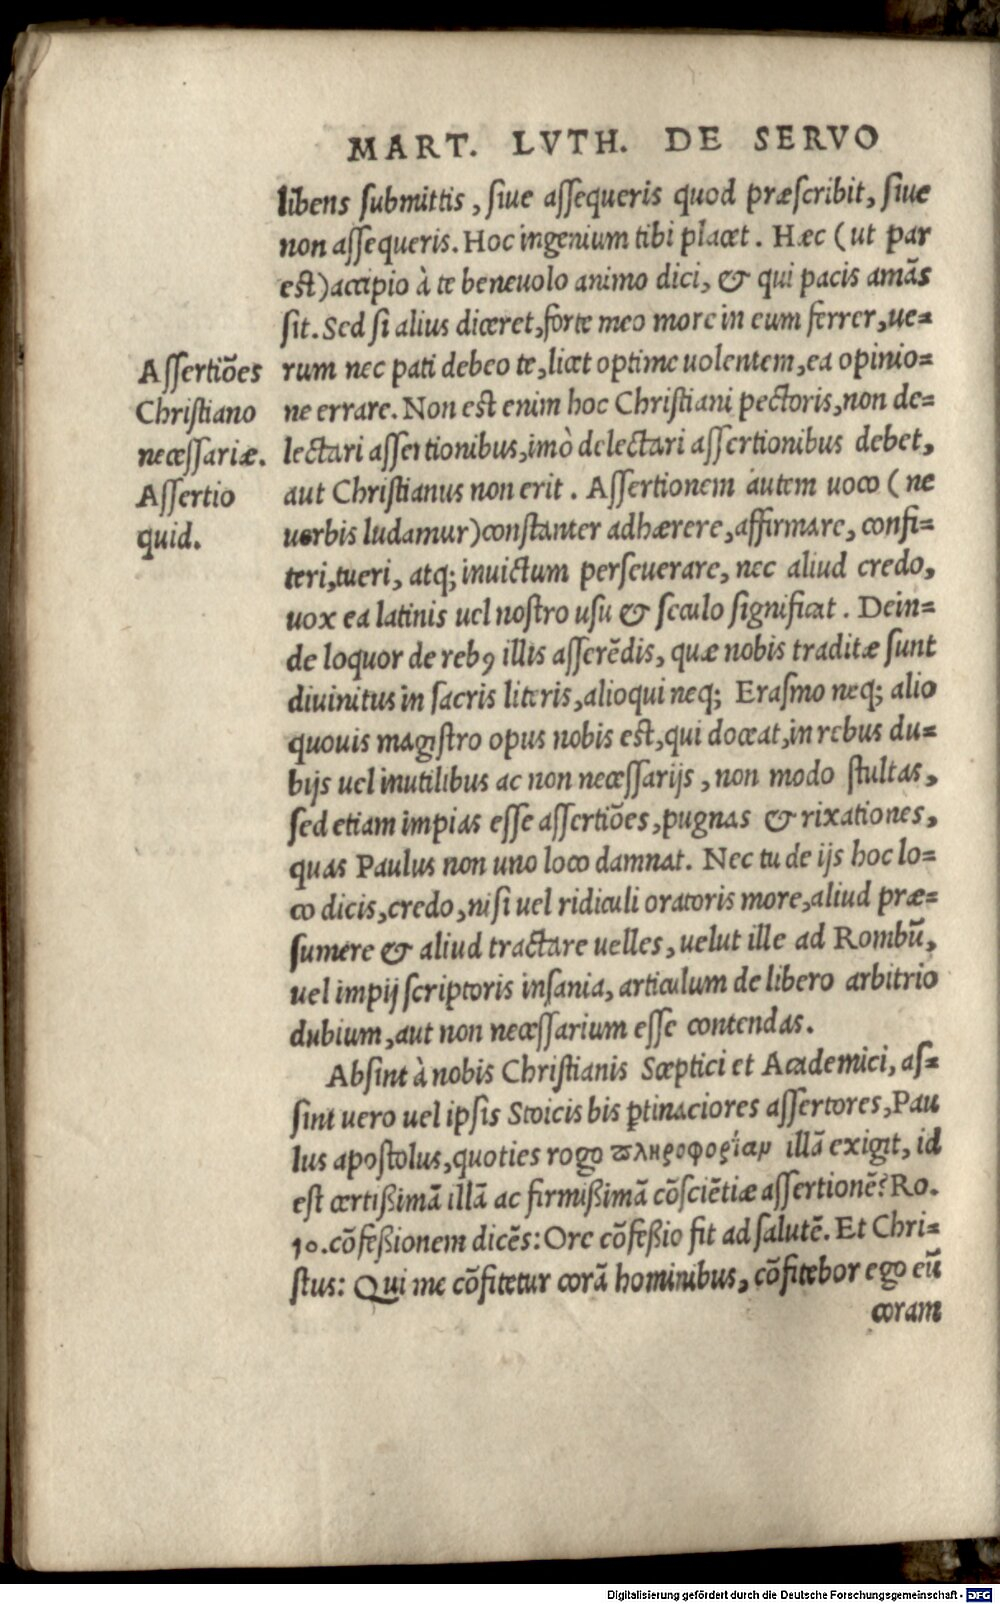 MART. LVTH. DE SERVO
libens ſubmittis, ſiue aſſequeris quod præſcribit, ſiue
non aſſequeris. Hoc ingenium tibi placet. Hæc (ut par
est) accipio à te beneuolo animo dici, & qui pacis amãs
sit. Sed ſi alius diceret, forte meo more in eum ferrer, ue=
Aſſertiões
Chriſtiano
neceſſariæ.
Aſſertio
quid.
rum nec pati debeo te, licet optime uolentem, ea opinio=
ne errare. Non est enim hoc Chriſtiani pectoris, non de=
lectari aſſertionibus, imò delectari aſſertionibus debet,
aut Chriſtianus non erit. Aſſertionem autem uoco (ne
uerbis ludamur) conſtanter adhærere, affirmare, confi=
teri, tueri, atq; inuictum perſeuerare, nec aliud credo,
uox ea latinis uel noſtro uſu & ſeculo ſignificat. Dein=
de loquor de rebꝰ illis aſſerẽdis, quæ nobis traditæ ſunt
diuinitus in ſacris literis, alioqui neq; Eraſmo neq; alio
quouis magiſtro opus nobis est, qui doceat, in rebus du=
bijs uel inutilibus ac non neceſſarijs, non modo ſtultas,
ſed etiam impias eſſe aſſertiões, pugnas & rixationes,
quas Paulus non uno loco damnat. Nec tu de ijs hoc lo=
co dicis, credo, niſi uel ridiculi oratoris more, aliud præ=
ſumere & aliud tractare uelles, uelut ille ad Rombũ,
uel impij ſcriptoris inſania, articulum de libero arbitrio
dubium, aut non neceſſarium eſſe contendas.
Abſint à nobis Chriſtianis Sceptici et Academici, aſ=
ſint uero uel ipſis Stoicis bis ꝑtinaciores aſſertores, Pau
lus apoſtolus, quoties rogo πληροφορίαν illã exigit, id
eſt certißimã illã ac firmißimã cõſciẽtiæ aſſertionẽ? Ro.
10. cõfeßionem dicẽs: Ore cõfeßio fit ad ſalutẽ. Et Chri=
ſtus: Qui me cõfitetur corã hominibus, cõfitebor ego eũ
coram
Digitalisierung gefördert durch die Deutsche Forschungsgemeinschaft - DFG